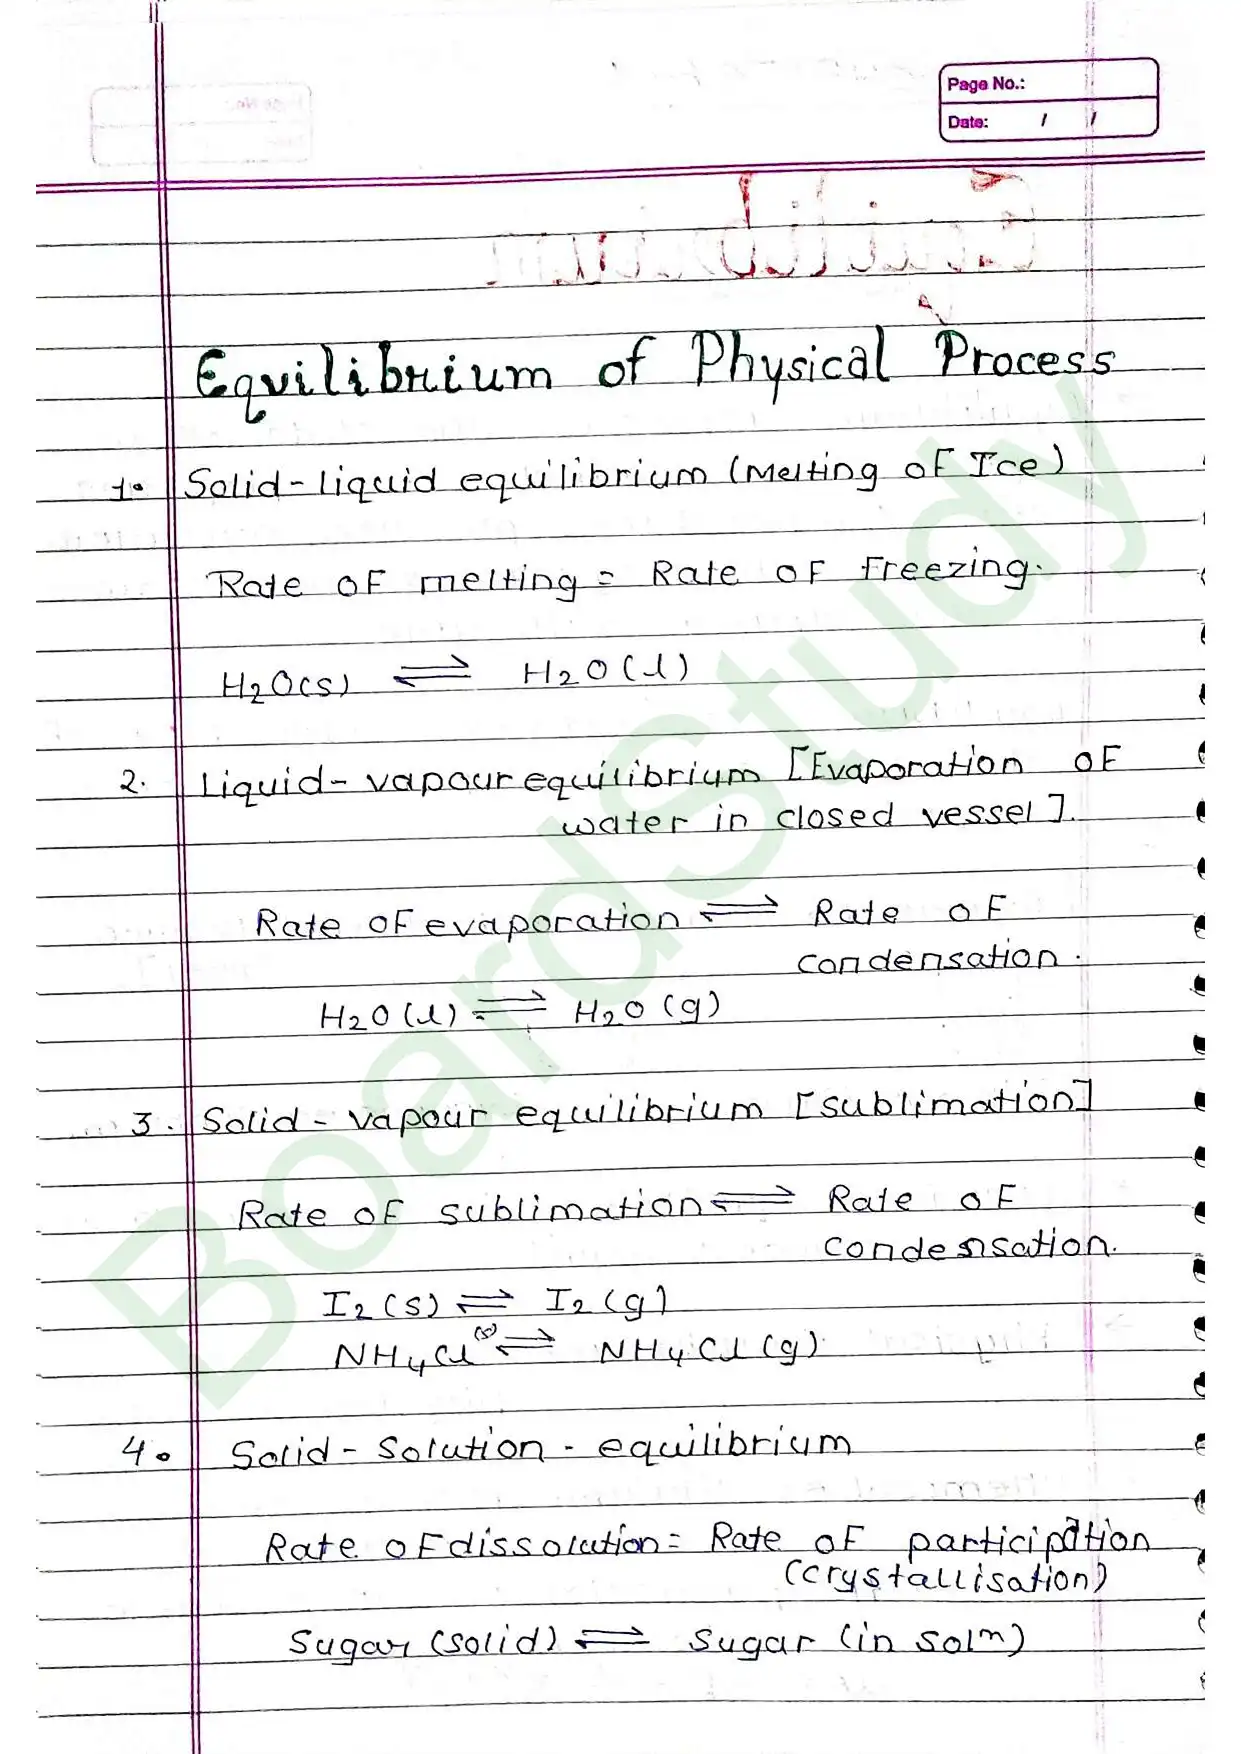 Page No.:
Date: / /
Equilibrium of Physical Process
1. Solid-liquid equilibrium (Melting of Ice)
Rate of melting = Rate of freezing.
H2O(s) ⇌ H2O(l)
2. Liquid-vapour equilibrium [Evaporation of
water in closed vessel].
Rate of evaporation ⇌ Rate of
condensation.
H2O(l) ⇌ H2O(g)
3. Solid-vapour equilibrium [sublimation]
Rate of sublimation ⇌ Rate of
condensation.
I2(s) ⇌ I2(g)
NH4Cl(s) ⇌ NH4Cl(g)
4. Solid-Solution-equilibrium
Rate of dissolution = Rate of participation
(crystallisation)
Sugar (solid) ⇌ Sugar (in solⁿ)
BoardStudy